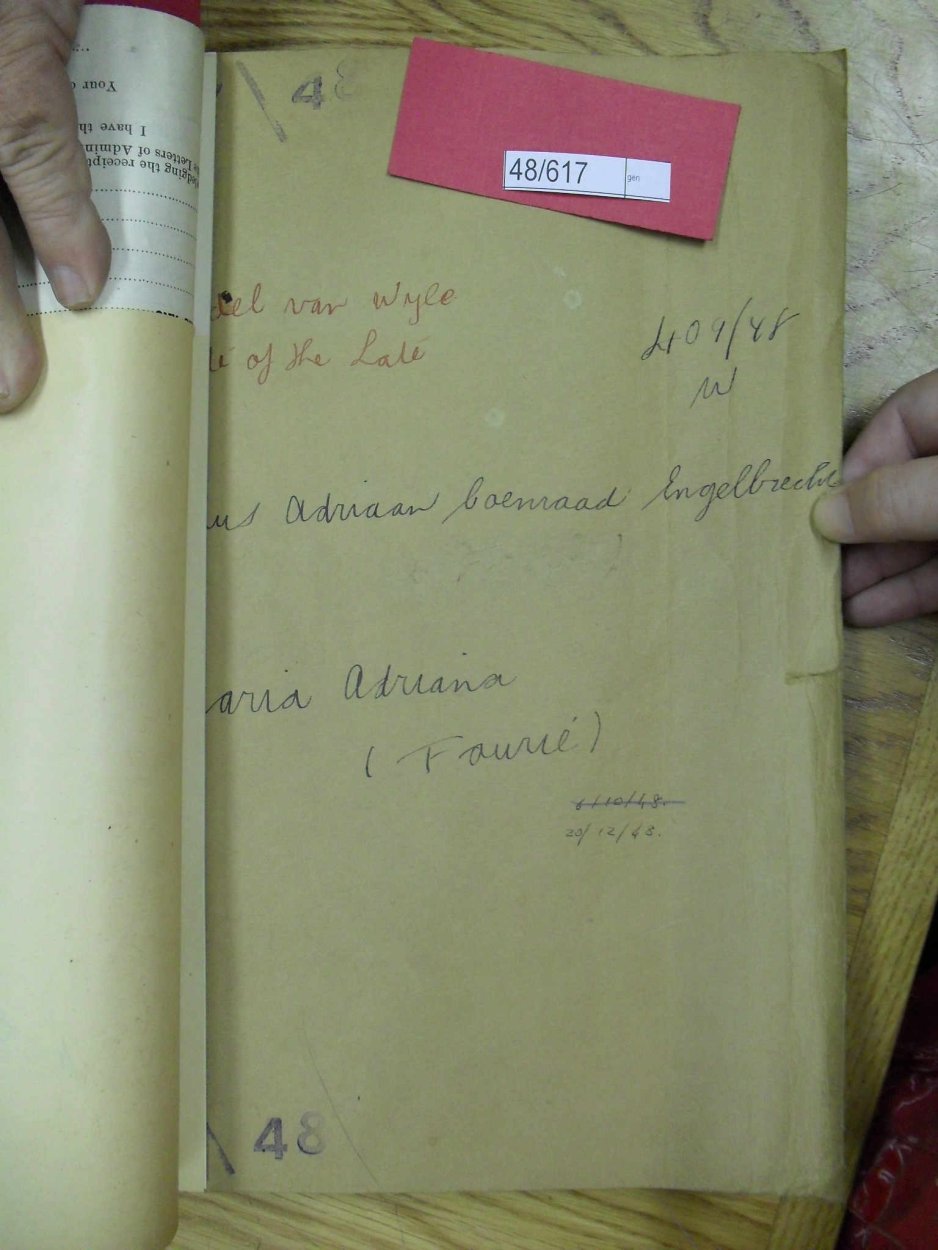 \ 48
48/617 gen
del van Wyle
te of the Late
409/48
W
us Adriaan Coenraad Engelbrecht
aria Adriana
(Fourie)
6/10/48.
20/12/48.
\ 48
Your
I have th
Letters of Admin
edging the receipt